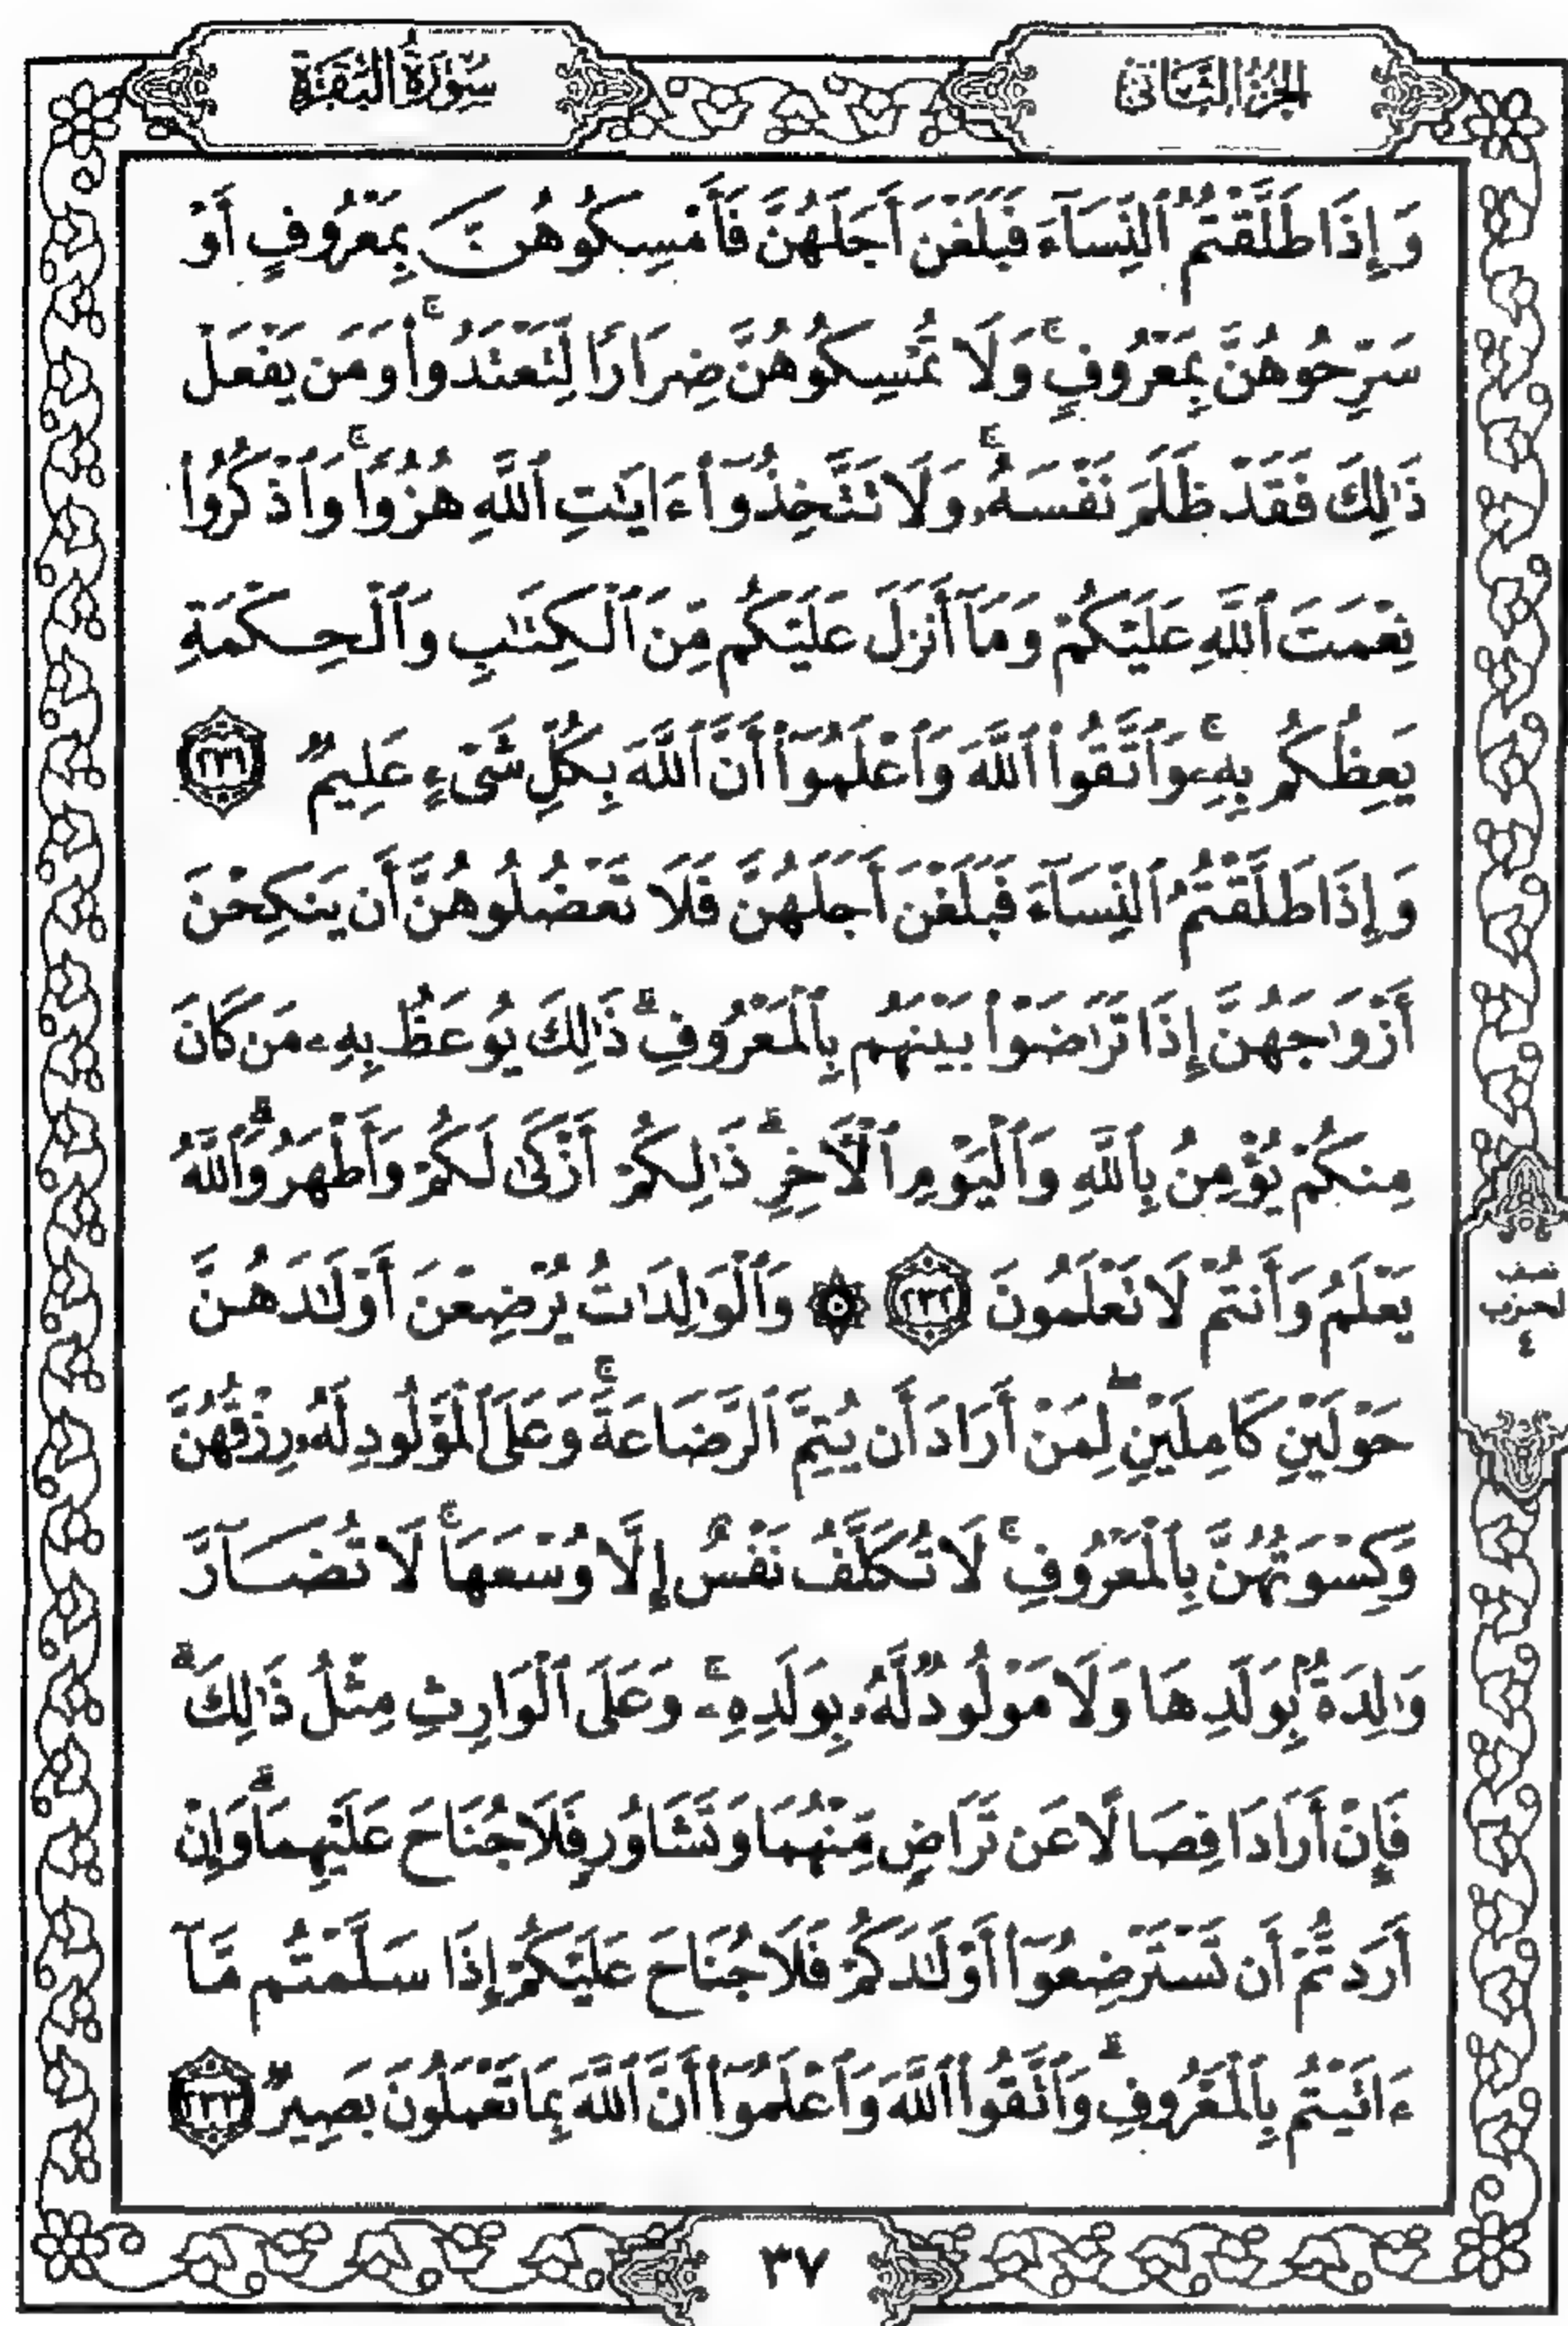 الجزء الثاني
سورة البقرة
وَإِذَا طَلَّقْتُمُ ٱلنِّسَآءَ فَبَلَغْنَ أَجَلَهُنَّ فَأَمْسِكُوهُنَّ بِمَعْرُوفٍ أَوْ
سَرِّحُوهُنَّ بِمَعْرُوفٍ ۚ وَلَا تُمْسِكُوهُنَّ ضِرَارًا لِّتَعْتَدُوا۟ ۚ وَمَن يَفْعَلْ
ذَٰلِكَ فَقَدْ ظَلَمَ نَفْسَهُۥ ۚ وَلَا تَتَّخِذُوٓا۟ ءَايَٰتِ ٱللَّهِ هُزُوًا ۚ وَٱذْكُرُوا۟
نِعْمَتَ ٱللَّهِ عَلَيْكُمْ وَمَآ أَنزَلَ عَلَيْكُم مِّنَ ٱلْكِتَٰبِ وَٱلْحِكْمَةِ
يَعِظُكُم بِهِۦ ۚ وَٱتَّقُوا۟ ٱللَّهَ وَٱعْلَمُوٓا۟ أَنَّ ٱللَّهَ بِكُلِّ شَىْءٍ عَلِيمٌ ٢٣١
وَإِذَا طَلَّقْتُمُ ٱلنِّسَآءَ فَبَلَغْنَ أَجَلَهُنَّ فَلَا تَعْضُلُوهُنَّ أَن يَنكِحْنَ
أَزْوَٰجَهُنَّ إِذَا تَرَٰضَوْا۟ بَيْنَهُم بِٱلْمَعْرُوفِ ۗ ذَٰلِكَ يُوعَظُ بِهِۦ مَن كَانَ
مِنكُمْ يُؤْمِنُ بِٱللَّهِ وَٱلْيَوْمِ ٱلْءَاخِرِ ۗ ذَٰلِكُمْ أَزْكَىٰ لَكُمْ وَأَطْهَرُ ۗ وَٱللَّهُ
يَعْلَمُ وَأَنتُمْ لَا تَعْلَمُونَ ٢٣٢ ۞ وَٱلْوَٰلِدَٰتُ يُرْضِعْنَ أَوْلَٰدَهُنَّ
حَوْلَيْنِ كَامِلَيْنِ ۖ لِمَنْ أَرَادَ أَن يُتِمَّ ٱلرَّضَاعَةَ ۚ وَعَلَى ٱلْمَوْلُودِ لَهُۥ رِزْقُهُنَّ
وَكِسْوَتُهُنَّ بِٱلْمَعْرُوفِ ۚ لَا تُكَلَّفُ نَفْسٌ إِلَّا وُسْعَهَا ۚ لَا تُضَآرَّ
وَٰلِدَةٌۢ بِوَلَدِهَا وَلَا مَوْلُودٌ لَّهُۥ بِوَلَدِهِۦ ۚ وَعَلَى ٱلْوَارِثِ مِثْلُ ذَٰلِكَ ۗ
فَإِنْ أَرَادَا فِصَالًا عَن تَرَاضٍ مِّنْهُمَا وَتَشَاوُرٍ فَلَا جُنَاحَ عَلَيْهِمَا ۗ وَإِنْ
أَرَدتُّمْ أَن تَسْتَرْضِعُوٓا۟ أَوْلَٰدَكُمْ فَلَا جُنَاحَ عَلَيْكُمْ إِذَا سَلَّمْتُم مَّآ
ءَاتَيْتُم بِٱلْمَعْرُوفِ ۗ وَٱتَّقُوا۟ ٱللَّهَ وَٱعْلَمُوٓا۟ أَنَّ ٱللَّهَ بِمَا تَعْمَلُونَ بَصِيرٌ ٢٣٣
نصف
الحزب
٤
٣٧